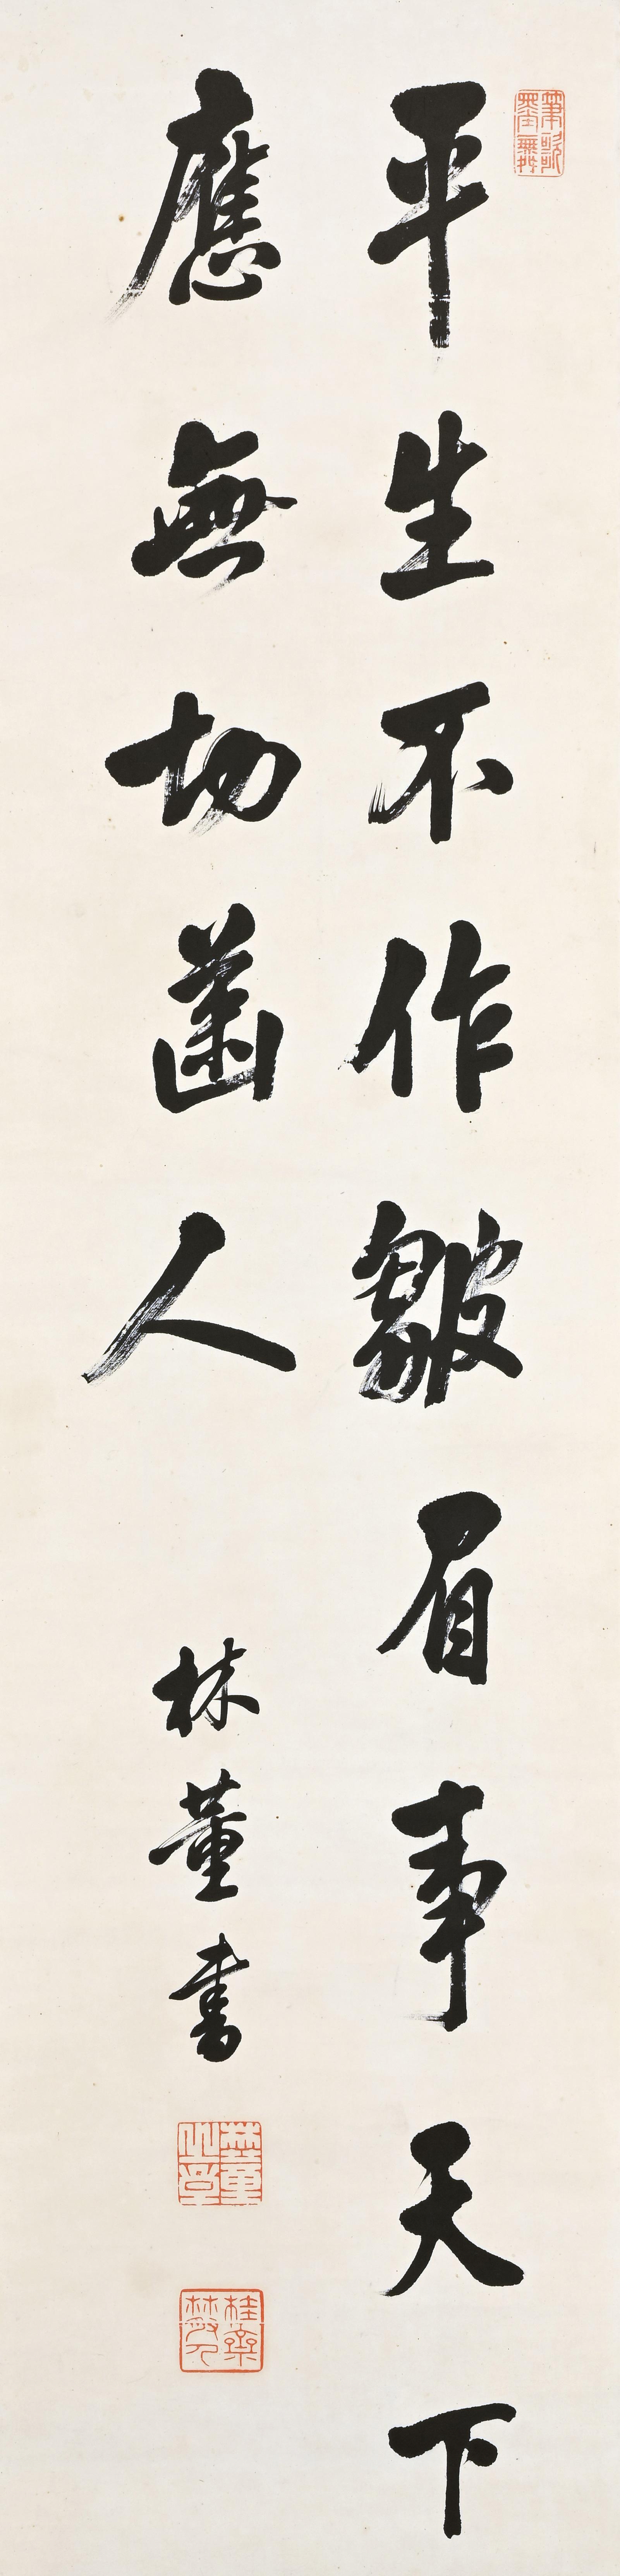 平生不作皺眉事天下
應無切齒人
林董書